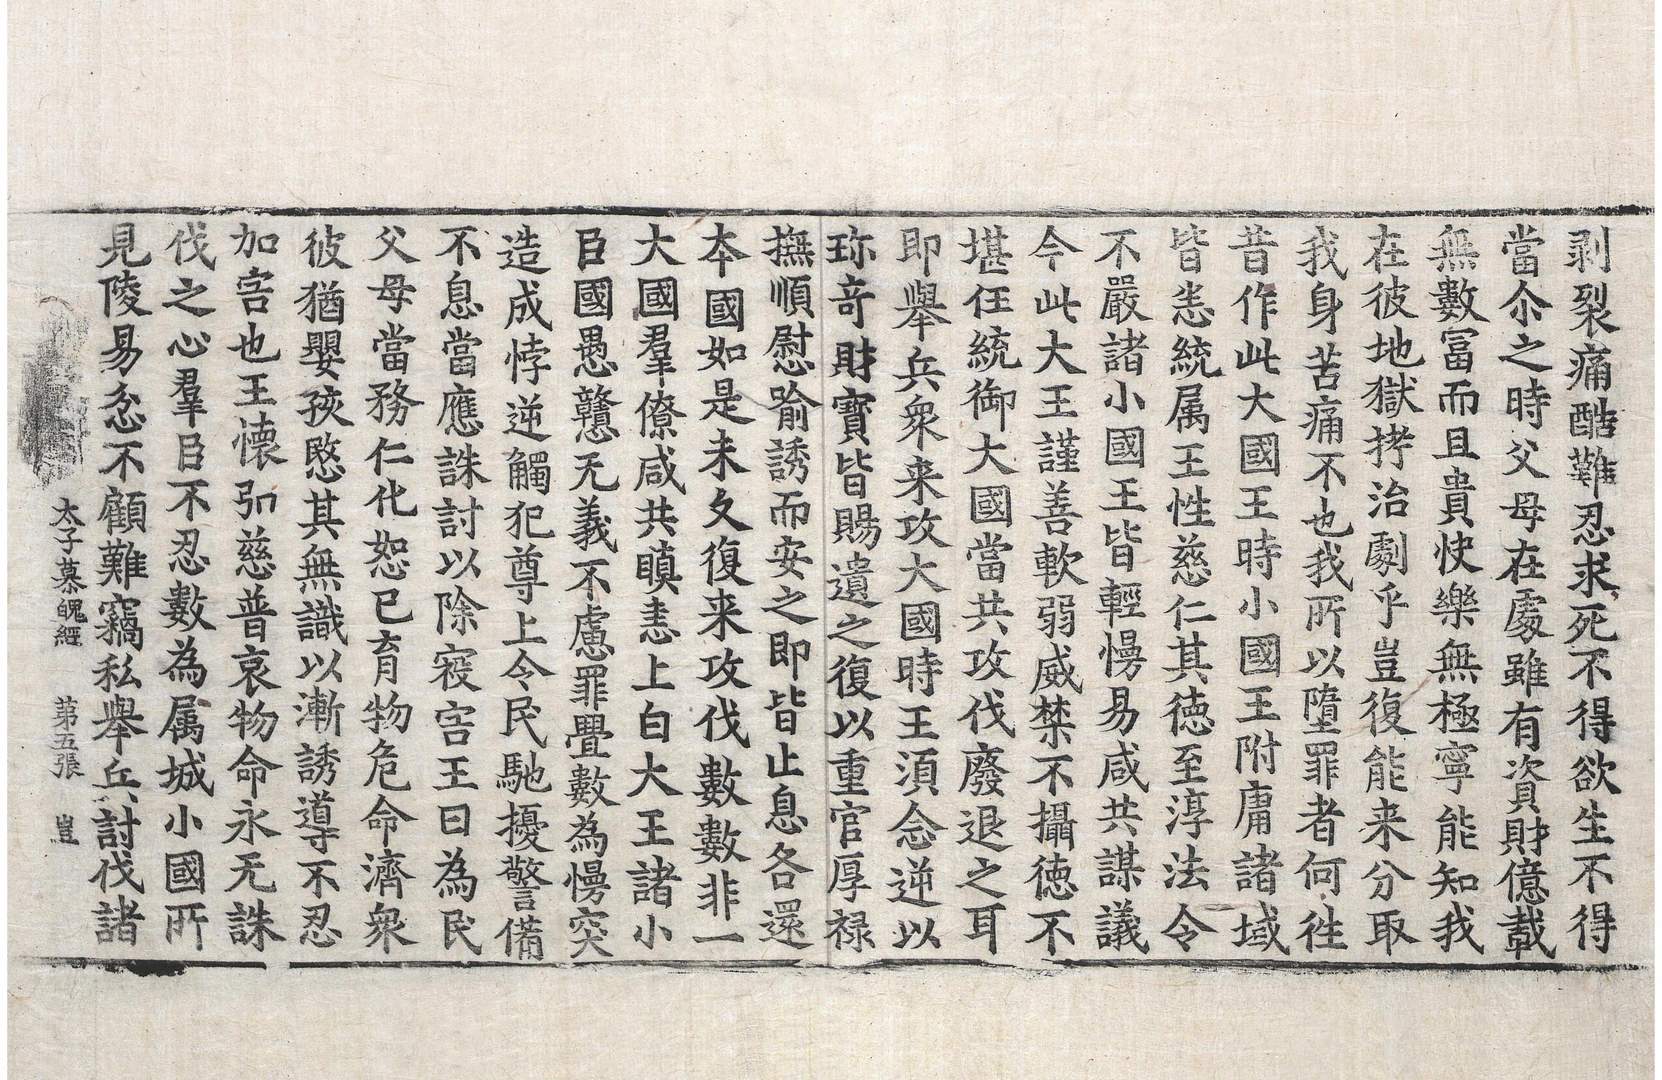 剥裂痛酷難忍求死不得欲生不得
當尒之時父母在處雖有資財億載
無數冨而且貴快樂無極寧能知我
在彼地獄拷治劇乎豈復能来分取
我身苦痛不也我所以墮罪者何徃
昔作此大國王時小國王附庸諸域
皆恙統属王性慈仁其德至淳法令
不嚴諸小國王皆輕慢易咸共謀議
今此大王謹善軟弱威禁不攝德不
堪任統御大國當共攻伐廢退之耳
即舉兵衆来攻大國時王湏念逆以
珎竒財寶皆賜遺之復以重官厚禄
撫順慰喻誘而安之即皆止息各還
夲國如是未久復来攻伐數數非一
大國羣僚咸共瞋恚上白大王諸小
臣國愚戇无義不慮罪舋數為慢突
造成悖逆觸犯尊上令民馳擾警備
不息當應誅討以除寇害王曰為民
父母當務仁化恕己育物危命濟衆
彼猶嬰孩愍其無識以漸誘導不忍
加害也王懷弘慈普哀物命永无誅
伐之心羣臣不忍數為属城小國所
見陵易忿不顧難竊私舉兵討伐諸
太子慕魄經 第五張 豈